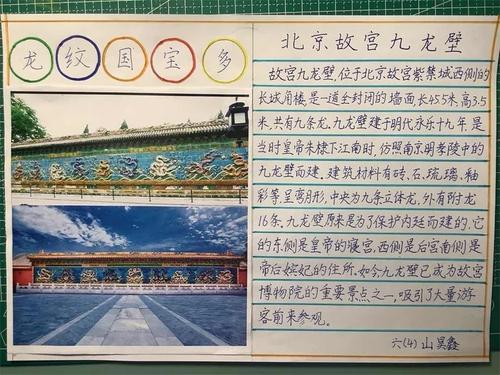 龙纹国宝多
北京故宫九龙壁
故宫九龙壁,位于北京故宫紫禁城西侧的
长城角楼,是一道全封闭的墙面,长45.5米,高3.5
米,共有九条龙。九龙壁建于明代永乐十九年,是
当时皇帝朱棣下江南时,仿照南京明孝陵中的
九龙壁而建,建筑材料有砖、石、琉璃、釉
彩等,呈弯月形,中央为九条立体龙,外有附龙
16条,九龙壁原来是为了保护内廷而建的,它
的东侧是皇帝的寝宫,西侧是后宫南侧是
帝后嫔妃的住所,如今九龙壁已成为故宫
博物院的重要景点之一,吸引了大量游
客前来参观。
六(4)山昊鑫